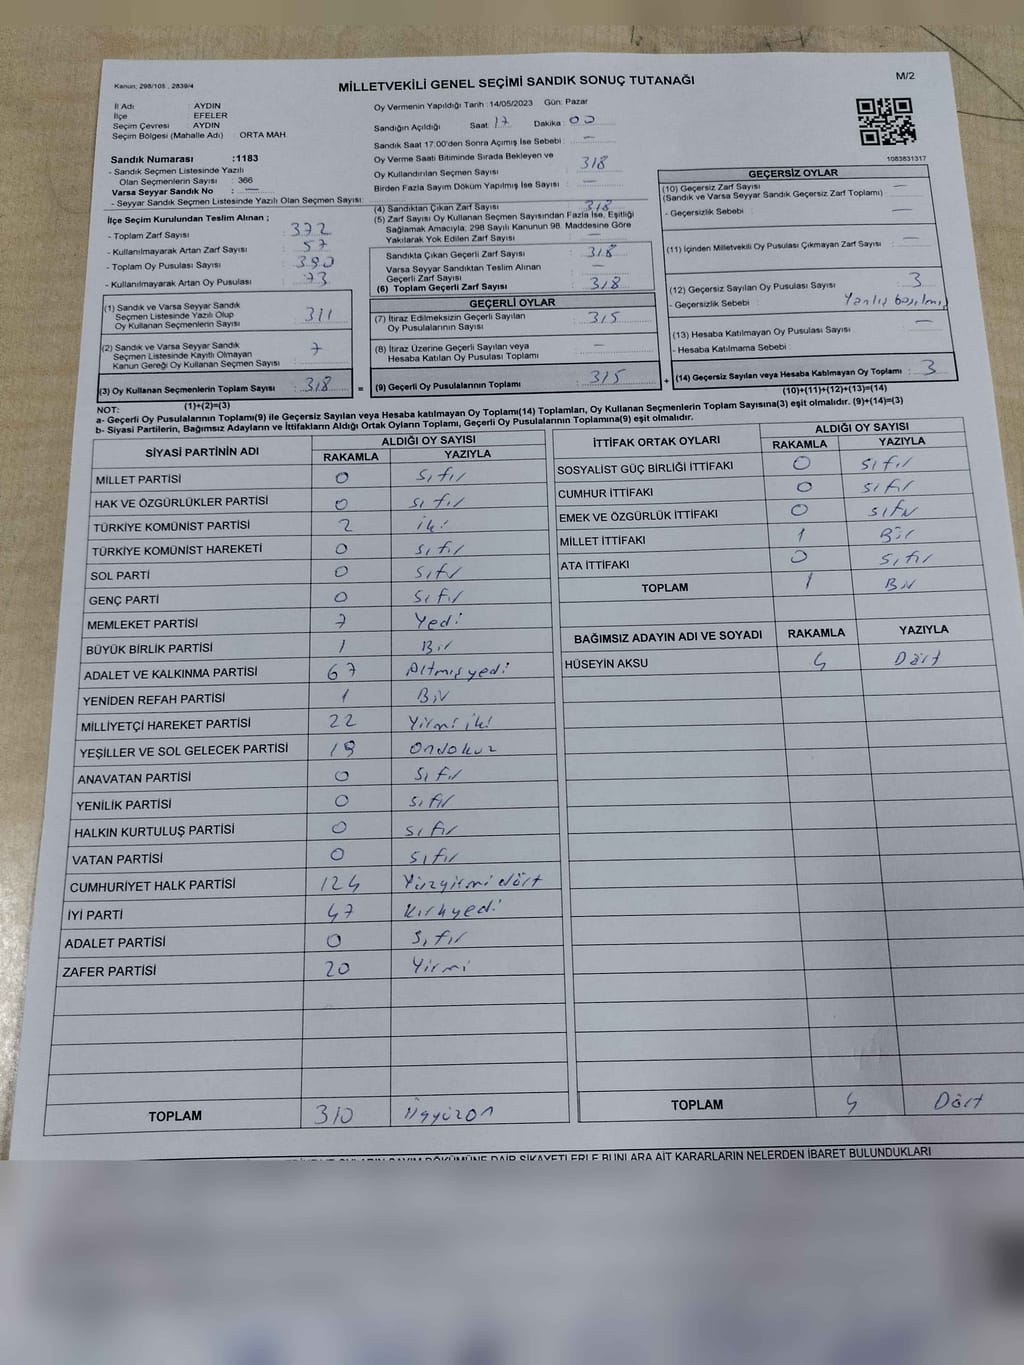 Kanun; 298/105 , 2839/4
MİLLETVEKİLİ GENEL SEÇİMİ SANDIK SONUÇ TUTANAĞI
M/2
İl Adı : AYDIN
İlçe : EFELER
Seçim Çevresi : AYDIN
Seçim Bölgesi (Mahalle Adı) : ORTA MAH
Sandık Numarası :1183
- Sandık Seçmen Listesinde Yazılı
Olan Seçmenlerin Sayısı : 366
Varsa Seyyar Sandık No : —
- Seyyar Sandık Seçmen Listesinde Yazılı Olan Seçmen Sayısı:
Oy Vermenin Yapıldığı Tarih :14/05/2023 Gün: Pazar
Sandığın Açıldığı Saat : 17 Dakika : 00
Sandık Saat 17:00'den Sonra Açımış İse Sebebi : —
Oy Verme Saati Bitiminde Sırada Bekleyen ve
Oy Kullandırılan Seçmen Sayısı : 318
Birden Fazla Sayım Döküm Yapılmış İse Sayısı : —
1083831317
İlçe Seçim Kurulundan Teslim Alınan ;
- Toplam Zarf Sayısı : 372
- Kullanılmayarak Artan Zarf Sayısı : 57
- Toplam Oy Pusulası Sayısı : 390
- Kullanılmayarak Artan Oy Pusulası : 73
(1) Sandık ve Varsa Seyyar Sandık
Seçmen Listesinde Yazılı Olup
Oy Kullanan Seçmenlerin Sayısı : 311
(2) Sandık ve Varsa Seyyar Sandık
Seçmen Listesinde Kayıtlı Olmayan
Kanun Gereği Oy Kullanan Seçmen Sayısı : 7
(3) Oy Kullanan Seçmenlerin Toplam Sayısı : 318
(1)+(2)=(3)
(4) Sandıktan Çıkan Zarf Sayısı : 318
(5) Zarf Sayısı Oy Kullanan Seçmen Sayısından Fazla İse, Eşitliği
Sağlamak Amacıyla; 298 Sayılı Kanunun 98. Maddesine Göre
Yakılarak Yok Edilen Zarf Sayısı : —
Sandıkta Çıkan Geçerli Zarf Sayısı : 318
Varsa Seyyar Sandıktan Teslim Alınan
Geçerli Zarf Sayısı : —
(6) Toplam Geçerli Zarf Sayısı : 318
GEÇERLİ OYLAR
(7) İtiraz Edilmeksizin Geçerli Sayılan
Oy Pusulalarının Sayısı : 315
(8) İtiraz Üzerine Geçerli Sayılan veya
Hesaba Katılan Oy Pusulası Toplamı : —
= (9) Geçerli Oy Pusulalarının Toplamı : 315
GEÇERSİZ OYLAR
(10) Geçersiz Zarf Sayısı : —
(Sandık ve Varsa Seyyar Sandık Geçersiz Zarf Toplamı)
- Geçersizlik Sebebi : —
(11) İçinden Milletvekili Oy Pusulası Çıkmayan Zarf Sayısı : —
(12) Geçersiz Sayılan Oy Pusulası Sayısı : 3
- Geçersizlik Sebebi : Yanlış basılmış
(13) Hesaba Katılmayan Oy Pusulası Sayısı : —
- Hesaba Katılmama Sebebi :
+ (14) Geçersiz Sayılan veya Hesaba Katılmayan Oy Toplamı : 3
(10)+(11)+(12)+(13)=(14)
NOT:
a- Geçerli Oy Pusulalarının Toplamı(9) ile Geçersiz Sayılan veya Hesaba katılmayan Oy Toplamı(14) Toplamları, Oy Kullanan Seçmenlerin Toplam Sayısına(3) eşit olmalıdır. (9)+(14)=(3)
b- Siyasi Partilerin, Bağımsız Adayların ve İttifakların Aldığı Ortak Oyların Toplamı, Geçerli Oy Pusulalarının Toplamına(9) eşit olmalıdır.
SİYASİ PARTİNİN ADI ALDIĞI OY SAYISI
RAKAMLA YAZIYLA
MİLLET PARTİSİ 0 Sıfır
HAK VE ÖZGÜRLÜKLER PARTİSİ 0 Sıfır
TÜRKİYE KOMÜNİST PARTİSİ 2 iki
TÜRKİYE KOMÜNİST HAREKETİ 0 Sıfır
SOL PARTİ 0 Sıfır
GENÇ PARTİ 0 Sıfır
MEMLEKET PARTİSİ 7 Yedi
BÜYÜK BİRLİK PARTİSİ 1 Bir
ADALET VE KALKINMA PARTİSİ 67 Altmışyedi
YENİDEN REFAH PARTİSİ 1 Bir
MİLLİYETÇİ HAREKET PARTİSİ 22 Yirmi iki
YEŞİLLER VE SOL GELECEK PARTİSİ 19 Ondokuz
ANAVATAN PARTİSİ 0 Sıfır
YENİLİK PARTİSİ 0 Sıfır
HALKIN KURTULUŞ PARTİSİ 0 Sıfır
VATAN PARTİSİ 0 Sıfır
CUMHURİYET HALK PARTİSİ 124 Yüzyirmidört
İYİ PARTİ 47 Kırkyedi
ADALET PARTİSİ 0 Sıfır
ZAFER PARTİSİ 20 Yirmi
TOPLAM 310 Üçyüzon
İTTİFAK ORTAK OYLARI ALDIĞI OY SAYISI
RAKAMLA YAZIYLA
SOSYALİST GÜÇ BİRLİĞİ İTTİFAKI 0 Sıfır
CUMHUR İTTİFAKI 0 Sıfır
EMEK VE ÖZGÜRLÜK İTTİFAKI 0 Sıfır
MİLLET İTTİFAKI 1 Bir
ATA İTTİFAKI 0 Sıfır
TOPLAM 1 Bir
BAĞIMSIZ ADAYIN ADI VE SOYADI RAKAMLA YAZIYLA
HÜSEYİN AKSU 4 Dört
TOPLAM 4 Dört
SAYIM DÖKÜMÜNE DAİR ŞİKAYETLERLE BUNLARA AİT KARARLARIN NELERDEN İBARET BULUNDUKLARI